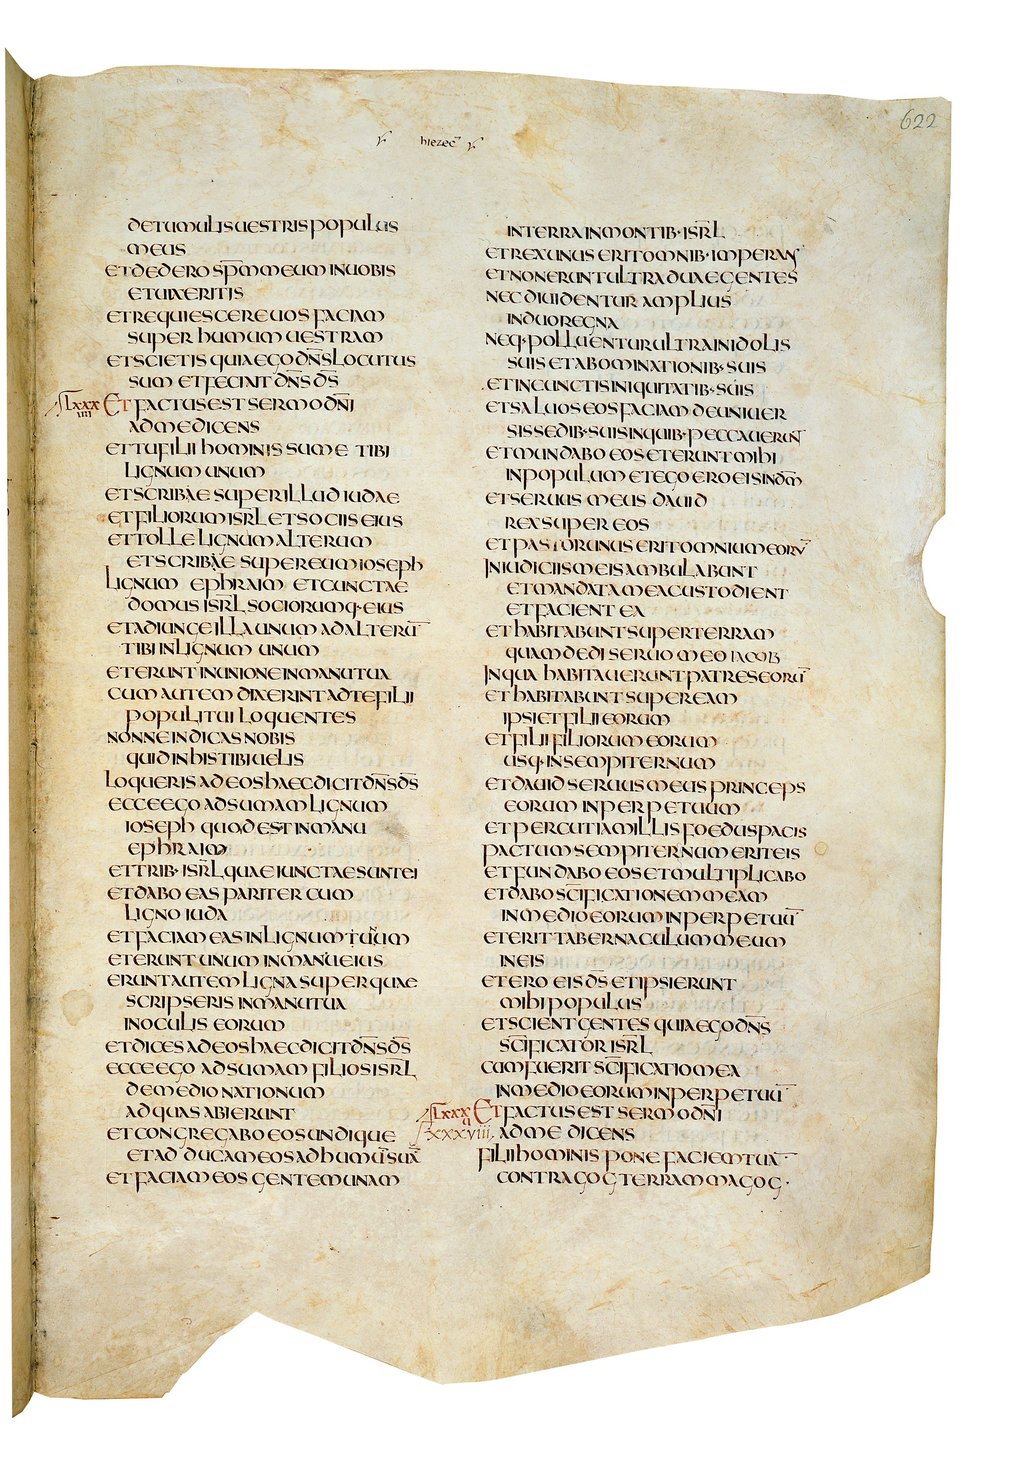 622
hiezec̄
DETUMULISUESTRISPOPULUS
MEUS
ETDEDEROSP̄MMEUMINUOBIS
ETUIXERITIS
ETREQUIESCEREUOSFACIAM
SUPERHUMUMUESTRAM
ETSCIETISQUIAEGOD̄N̄SLOCUTUS
SUMETFECIAITD̄N̄SD̄S̄
LXXX
IIII
ETFACTUSESTSERMOD̄N̄I
ADMEDICENS
ETTUFILIHOMINISSUMETIBI
LIGNUMUNUM
ETSCRIBAESUPERILLUDIUDAE
ETFILIORUMISR̄LETSOCIISEIUS
ETTOLLELIGNUMALTERUM
ETSCRIBAESUPEREUMIOSEPH
LIGNUM EPHRAIM ETCUNCTAE
DOMUSISR̄LSOCIORUMQ·EIUS
ETADIUNGEILLAUNUMADALTERŪ
TIBIINLIGNUM UNUM
ETERUNTINUNIONEINMANUTUA
CUMAUTEMDIXERINTADTEFILII
POPULITUILOQUENTES
NONNEINDICASNOBIS
QUIDINHISTIBIUELIS
LOQUERISADEOSHAECDICITD̄N̄SD̄S̄
ECCEEGOADSUMAMLIGNUM
IOSEPH QUODESTINMANU
EPHRAIM
ETTRIB·ISR̄LQUAEIUNCTAESUNTEI
ETDABOEASPARITERCUM
LIGNOIUDA
ETFACIAMEASINLIGNUM
ETERUNTUNUMINMANUEIUS
ERUNTAUTEMLIGNASUPERQUAE
SCRIPSERISINMANUTUA
INOCULISEORUM
ETDICESADEOSHAECDICITD̄N̄SD̄S̄
ECCEEGOADSUMAMFILIOSISR̄L
DEMEDIONATIONUM
ADQUASABIERUNT
ETCONGREGABOEOSUNDIQUE
ETADDUCAMEOSADHUMŪSUĀ
ETFACIAMEOSGENTEMUNAM
INTERRAINMONTIB·ISR̄L
ETREXUNUSERITOMNIB·IMPERANS
ETNONERUNTULTRADUAEGENTES
NECDIUIDENTURAMPLIUS
INDUOREGNA
NEQ·POLLUENTURULTRAINIDOLIS
SUISETABOMINATIONIB·SUIS
ETINCUNCTISINIQUITATIB·SUIS
ETSALUOSEOSFACIAMDEUNIUER
SISSEDIB·SUISINQUIB·PECCAUERUNT
ETMUNDABOEOSETERUNTMIHI
INPOPULUMETEGOEROEISIND̄M̄
ETSERUUSMEUSDAUID
REXSUPEREOS
ETPASTORUNUSERITOMNIUMEORŪ
INIUDICIISMEISAMBULABUNT
ETMANDATAMEACUSTODIENT
ETFACIENTEA
ETHABITABUNTSUPERTERRAM
QUAMDEDISERUOMEOIACOB
INQUAHABITAUERUNTPATRESEORŪ
ETHABITABUNTSUPEREAM
IPSIETFILIIEORUM
ETFILIIFILIORUMEORUM
USQ·INSEMPITERNUM
ETDAUIDSERUUSMEUSPRINCEPS
EORUMINPERPETUUM
ETPERCUTIAMILLISFOEDUSPACIS
PACTUMSEMPITERNUMERITEIS
ETFUNDABOEOSETMULTIPLICABO
ETDABOSC̄IFICATIONEMMEAM
INMEDIOEORUMINPERPETUŪ
ETERITTABERNACULUMMEUM
INEIS
ETEROEISD̄S̄ETIPSIERUNT
MIHIPOPULUS
ETSCIENTGENTESQUIAEGOD̄N̄S
SC̄IFICATORISR̄L
CUMFUERITSC̄IFICATIOMEA
INMEDIOEORUMINPERPETUŪ
LXXX
U
ETFACTUSESTSERMOD̄N̄I
XXXVIII.
ADMEDICENS
FILIIHOMINISPONEFACIEMTUĀ
CONTRAGOGTERRAMMAGOG·